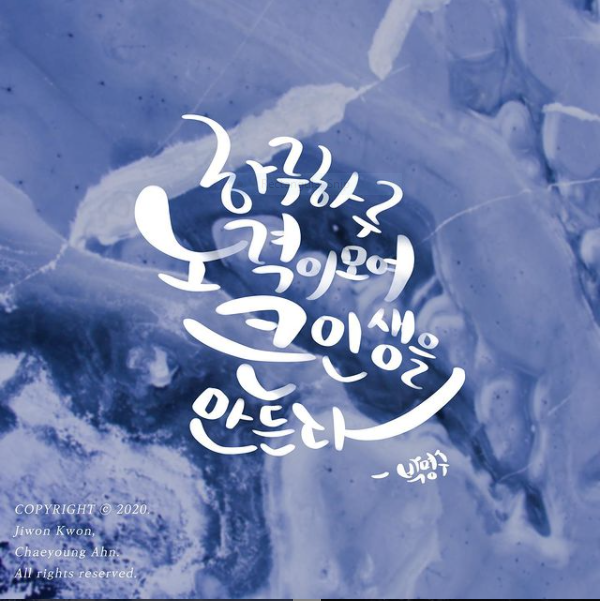 하루하루
노력이 모여
큰 인생을
만든다
- 박명수
COPYRIGHT © 2020.
Jiwon Kwon,
Chaeyoung Ahn.
All rights reserved.